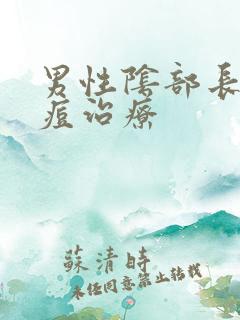 男性陰部長
痘治療
蘇清時
未經同意禁止轉載